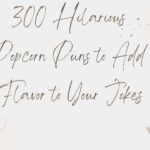 300 Hilarious
Popcorn Puns to Add
Flavor to Your Jokes